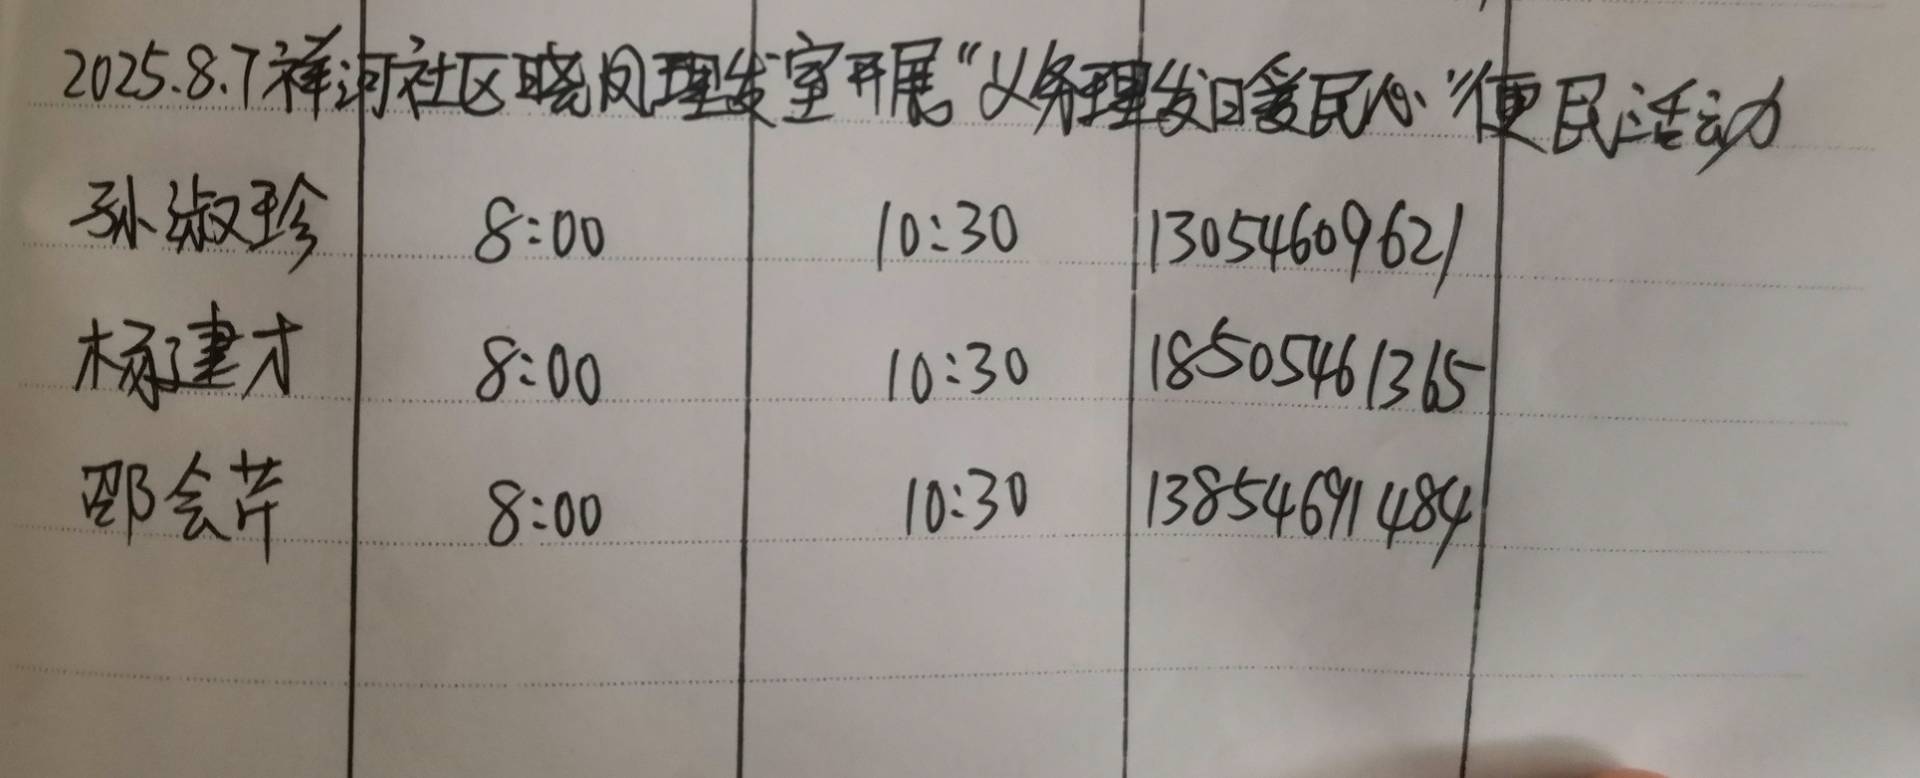 2025.8.7祥河社区晓风理发室开展“义务理发日爱民心”便民活动
孙淑珍 8:00 10:30 13054609621
杨建才 8:00 10:30 18505461365
邵会芹 8:00 10:30 13854691484